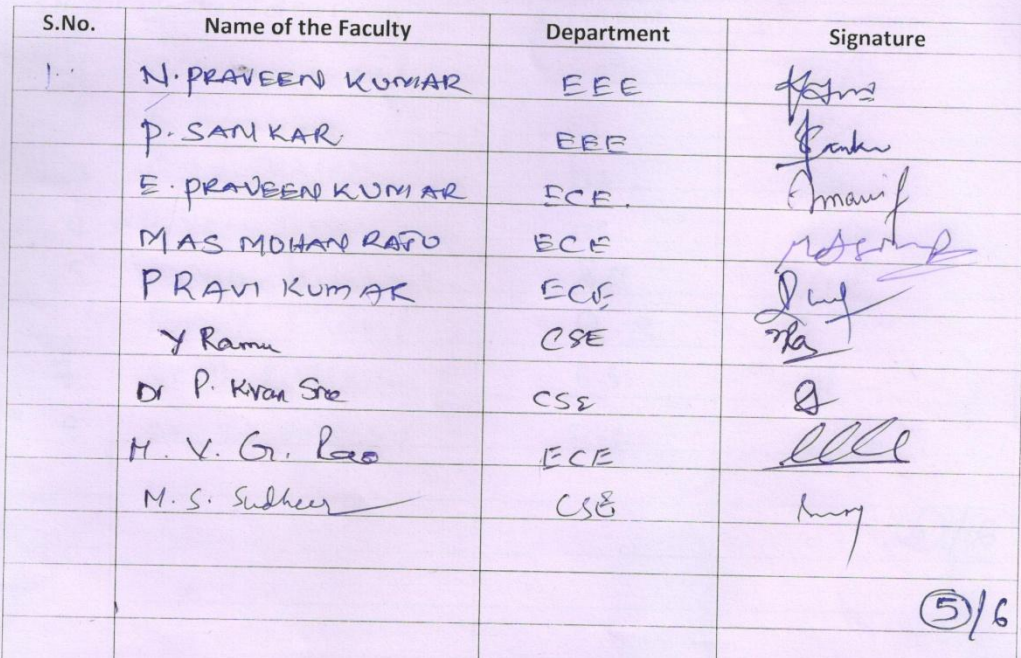 S.No. Name of the Faculty Department Signature
1. N. PRAVEEN KUMAR EEE
P. SANKAR EEE Sankar
E. PRAVEEN KUMAR ECE.
MAS MOHAN RAJU ECE
P RAVI KUMAR ECE
Y Ramu CSE
Dr P. Kiran Sree CSE
M. V. G. Rao ECE
M. S. Sudheer CSE
5/6